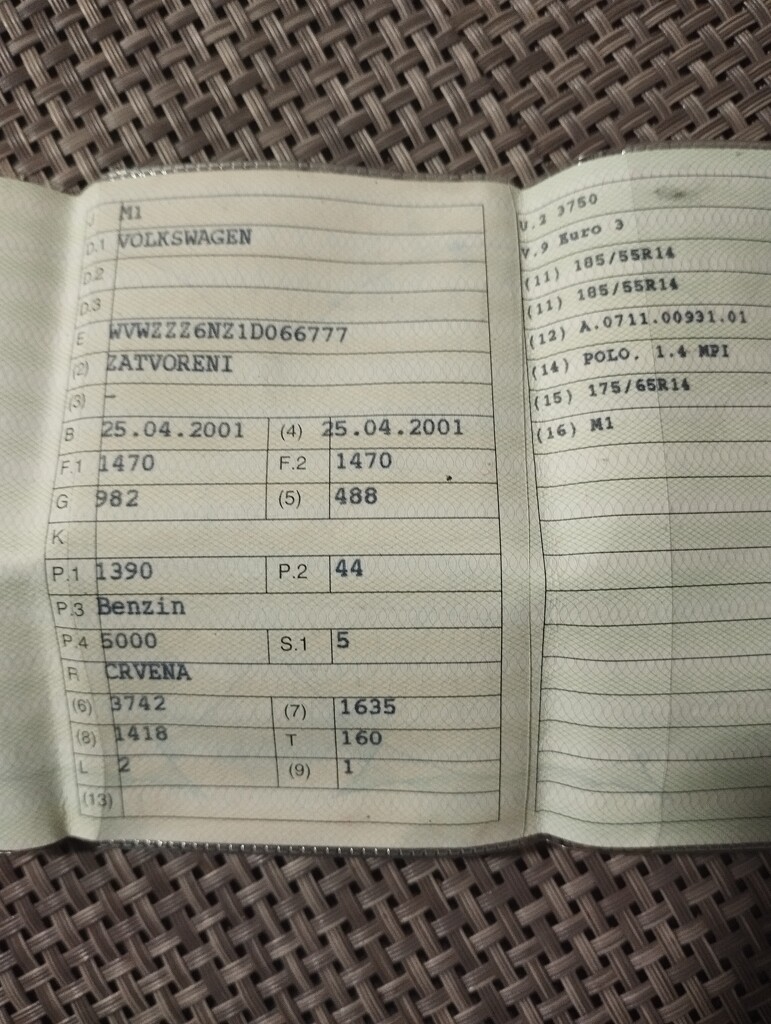 J M1
D.1 VOLKSWAGEN
D.2
D.3
E WVWZZZ6NZ1D066777
(2) ZATVORENI
(3) -
B 25.04.2001 (4) 25.04.2001
F.1 1470 F.2 1470
G 982 (5) 488
K
P.1 1390 P.2 44
P.3 Benzin
P.4 5000 S.1 5
R CRVENA
(6) 3742 (7) 1635
(8) 1418 T 160
L 2 (9) 1
(13)
U.2 3750
V.9 Euro 3
(11) 185/55R14
(11) 185/55R14
(12) A.0711.00931.01
(14) POLO. 1.4 MPI
(15) 175/65R14
(16) M1